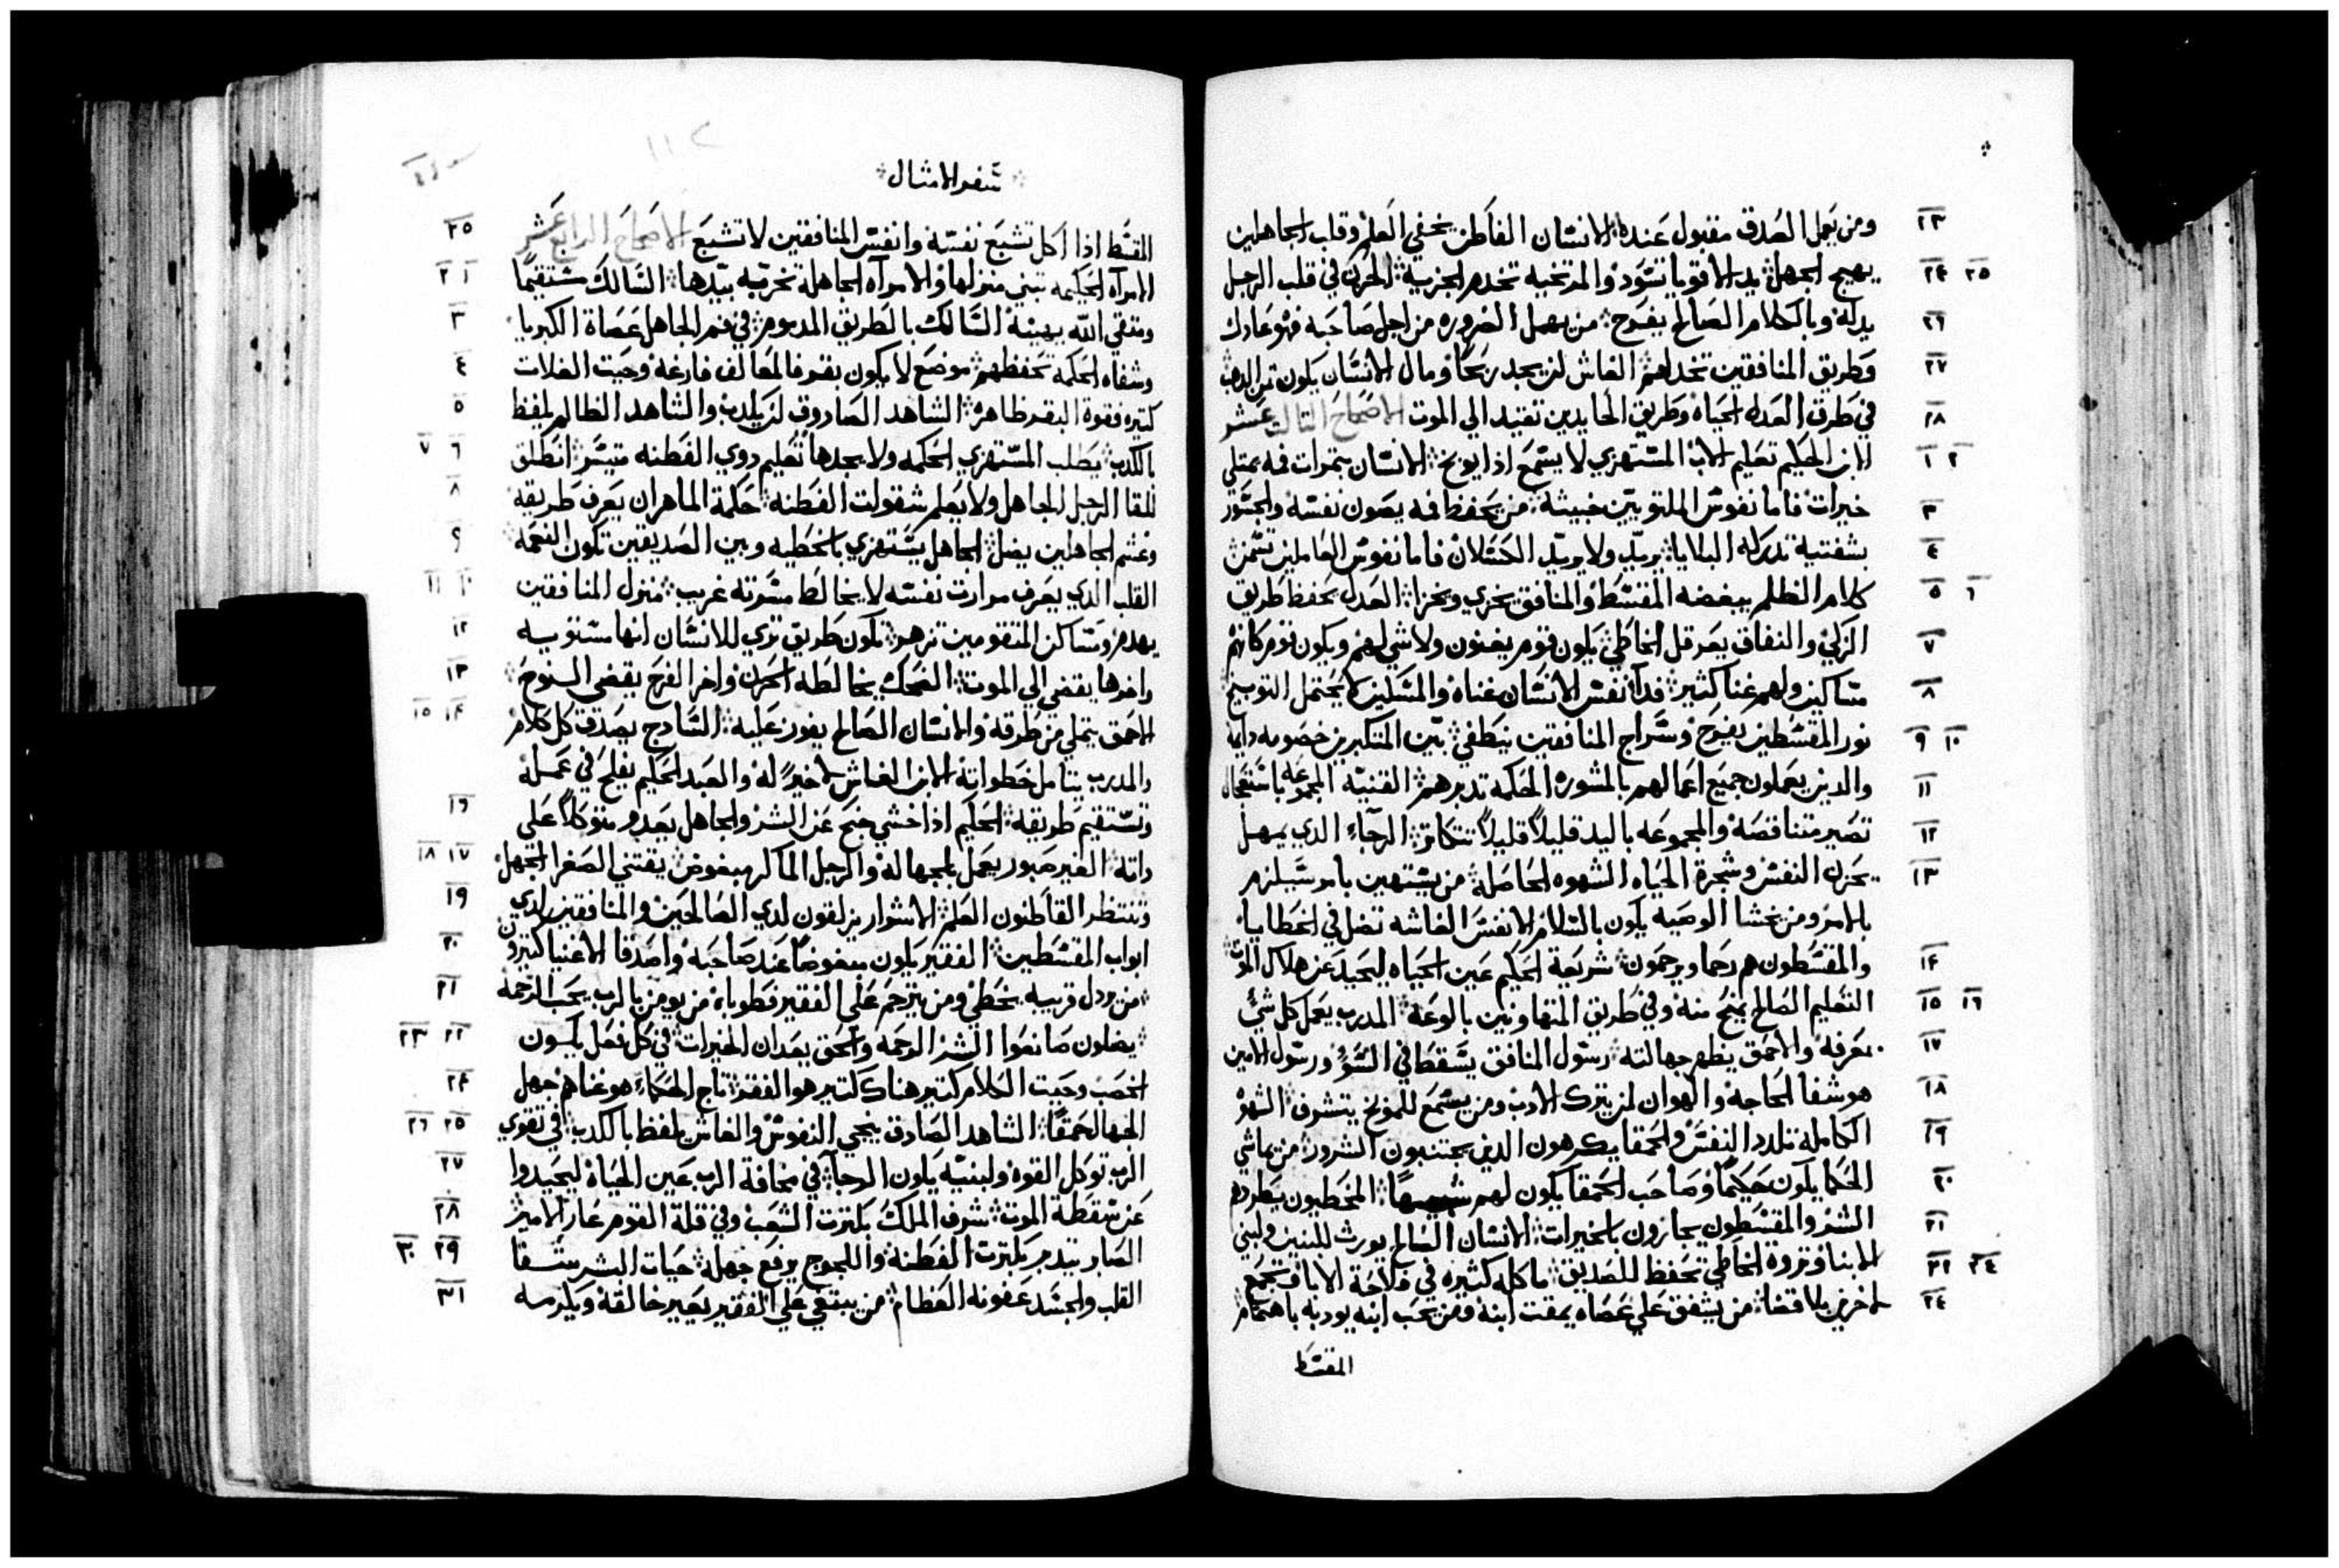 ومن يعمل الصدق مقبول عنده الانسان الفاطن يخفي العلم وقلب الجاهلين ٢٣
يهيج الجهل يد الاقويا تسود والمرتخيه تخدم الجزيه الحزن في قلب الرجل ٢٤ ٢٥
يدله وبالكلام الصالح يفرح من يهمل الضروره من اجل صاحبه فهو عادل ٢٦
وطريق المنافقين تخدلهم الغاش لن يجد ربحًا ومال الانسان يكون تمن الدهب ٢٧
في طرق العدل الحياه وطريق الحايدين تقيد الي الموت الاصحاح التالت عشر ٢٨
الابن الحكيم تعليم الاب المستهزي لا يسمع اذا يوبخ الانسان بتمرات فمه يمتلي ١ ٢
خيرات فاما نفوس الملتويين خبيثه من يحفظ فمه يصون نفسه والجسور ٣
بشفتيه تدركه البلايا يريد ولا يريد الكسلان فاما نفوس العاملين تسمن ٤
كلام الظلم يبغضه المقسط والمنافق يخزي ويخزا العدل يحفظ طريق ٥ ٦
الزكي والنفاق يعرقل الخاطي يكون قوم يغنون ولا شي لهم ويكون قوم كانهم ٧
مساكين ولهم غنا كثير فدآ نفس الانسان غناه والمسكين لا يحتمل التوبيخ ٨
نور المقسطين يفرح وسراج المنافقين ينطفي بين المتكبرين خصومه دايمه ٩ ١٠
والدين يعملون جميع اعمالهم بالمشوره الحكمه تدبرهم القنيه المجموعه باستعجال ١١
تصير متناقصه والمجموعه باليد قليلاً قليلاً تتكاتر الرجآء الذي يمهل ١٢
يحزن النفس وشجرة الحياه الشهوه الحاصله من يستهين بامر سيلزم ١٣
بالامر ومن يخشا الوصيه يكون بالسلام الانفس الغاشه تضل في الخطايا
والمقسطون هم رحما ويرحمون شريعة الحكيم عين الحياه ليحيد عن هلاك الموت ١٤
التعليم الصالح يمنح منه وفي طريق المتهاونين بالوعه المدرب يعمل كل شي ١٥ ١٦
بمعرفه والاحمق يظهر جهالته رسول المنافق يسقط في السؤ ورسول الامين ١٧
هو شفا الحاجه والهوان لمن يترك الادب ومن يسمع للموبخ يتشرف الشهوه ١٨
الكامله تلدد النفس والحمقا يكرهون الذين يجتنبون الشرور من يماشي ١٩
الحكما يكون حكيمًا وصاحب الحمقا يكون لهم شبيهًا المخطيون يطردهم ٢٠
الشر والمقسطون يجازون بالخيرات الانسان الصالح يورث للبنين ولبني ٢١
الابنا وتروة الخاطي تحفظ للصديق ماكله كثيره في فلاحة الابا وتجمع ٢٢ ٢٤
لاخرين بلا قضا من يشفق علي عصاه يمقت ابنه ومن يحب ابنه يودبه باهتمام ٢٤
المقسط
سفر الامثال
١١٢
المقسط اذا اكل تشبع نفسه وانفس المنافقين لا تشبع الاصحاح الرابع عشر ٢٥
الامرآه الحكيمه تبني منزلها والامرآه الجاهله تخربه بيدها السالك مستقيمًا ١ ٢
ومتقي الله يهينه السالك بالطريق المدموم في فم الجاهل عصاة الكبريا ٣
وشفاه الحكمة تحفظهم موضع لا يكون بقر فالمعالف فارغه وحيت الغلات ٤
كتيره فقوة البقر ظاهره الشاهد الصادوق لن يكدب والشاهد الظالم يلفظ ٥
بالكدب يطلب المستهزي الحكمه ولا يجدها تعليم دوي الفطنه متيسر انطلق ٦ ٧
للقا الرجل الجاهل ولا يعلم شقولت الفطنه حكمة الماهر ان يعرف طريقه ٨
وغشم الجاهلين يضل الجاهل يستهزي بالخطيه وبين الصديقين تكون النعمه ٩
القلب الذي يعرف مرارت نفسه لا يخالط مسرته غريب منزل المنافقين ١٠ ١١
يهدم ومساكن المتقومين تزهر تكون طريق تري للانسان انها مستويه ١٢
واخرها يفضي الي الموت الضحك يخالطه الحزن واخر الفرح يقضي النوح ١٣
الاحمق يمتلي من طرقه والانسان الصالح يفوز عليه الساذج يصدق كل كلام ١٤ ١٥
والمدرب يتامل خطواته الابن الغاش لا خير له والعبد الحكيم يفلح في عمله
وتستقيم طريقه الحكيم اذا خشي جنح عن الشر والجاهل يعدو متوكلاً علي ١٦
داته الغير صبور يعمل بالجهاله والرجل الماكر مبغوض يقتني الصغرا الجهل ١٧ ١٨
وتنتظر الفاطنون العلم الاشرار يزلقون لدي الصالحين والمنافقين لدي ١٩
ابواب المقسطين الفقير يكون مبغوضًا عند صاحبه واصدقا الاغنيا كتيرون ٢٠
من ردل قريبه يخطي ومن يترحم علي الفقير فطوباه من يومن بالرب يحب الرحمه ٢١
يضلون صانعوا الشر الرحمه والحق يعدان الخيرات في كل فعل يكون ٢٢ ٢٣
الخصب وحيت الكلام كتير هناك كتير هو الفقر تاج الحكماء هو غناهم جهل ٢٤
الجهال حمقًا الشاهد الصادق ينجي النفوس والغاش يلفظ بالكدب في تقوي ٢٥ ٢٦
الرب توكل القوه ولبنيه يكون الرجآ في مخافة الرب عين الحياه ليحيدوا ٢٧
عن سقطة الموت شرف الملك بكترت الشعب وفي قلة القوم عار الامير ٢٨
الصابر يتدبر بكترت الفطنه واللجوج يرفع جهله حيات البشر شفا ٢٩ ٣٠
القلب والجسد عفونه العظام من يبتغي علي الفقير يعير خالقه ويكرمه ٣١